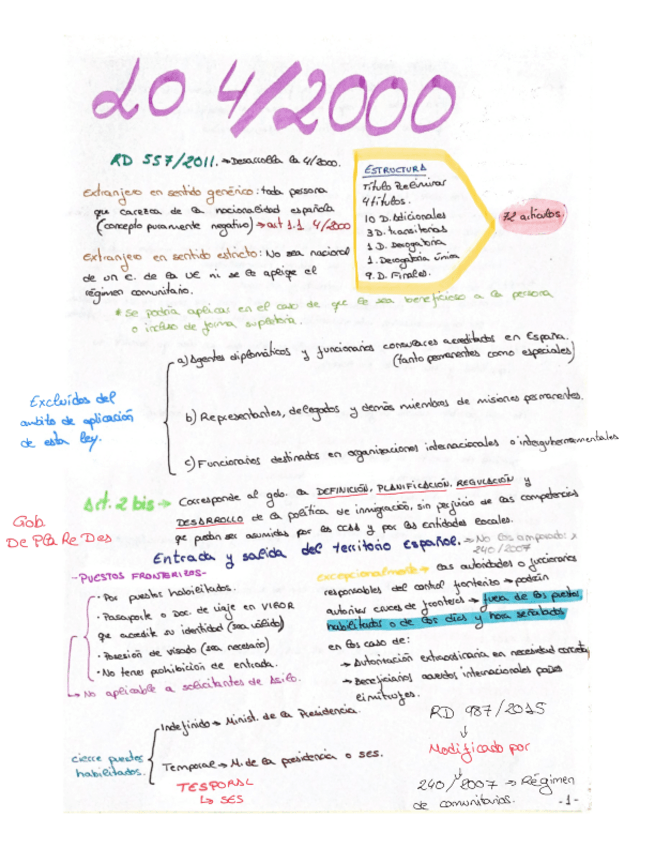 LO 4/2000
RD 557/2011. → Desarrolla la 4/2000.
Extranjero en sentido genérico: toda persona
que carezca de la nacionalidad española
(concepto puramente negativo) → art 1.1 4/2000
Extranjero en sentido estricto: No sea nacional
de un E. de la UE ni se le aplique el
régimen comunitario.
* Se podría aplicar en el caso de que le sea beneficioso a la persona
o incluso de forma supletoria.
ESTRUCTURA
Título Preliminar
4 títulos.
10 D. Adicionales
3 D. transitorias
1 D. Derogatoria
1. Derogatoria única
9. D. Finales.
72 artículos.
Excluidos del
ambito de aplicación
de esta ley.
a) Agentes diplomáticos y funcionarios consulares acreditados en España.
(tanto permanentes como especiales)
b) Representantes, delegados y demás miembros de misiones permanentes.
c) Funcionarios destinados en organizaciones internacionales o intergubernamentales
Art. 2 bis → Corresponde al gob. la DEFINICIÓN, PLANIFICACIÓN, REGULACIÓN y
DESARROLLO de la política de inmigración, sin perjuicio de las competencias
qe puedan ser asumidas por las CCAA y por las entidades locales.
Gob
De Pla Re Des
Entrada y salida del territorio Español. → No los amparados x
240/2007
- PUESTOS FRONTERIZOS -
· Por puestos habilitados.
· Pasaporte o Doc. de viaje en VIGOR
que acredite su identidad (sea válido)
· Posesión de visado (sea necesario)
· No tener prohibición de entrada.
→ No aplicable a solicitantes de Asilo.
excepcionalmente → las autoridades o funcionarios
responsables del control fronterizo → podrán
autorizar cruces de fronteras → fuera de los puestos
habilitados o de los días y hora señalados
en los caso de:
→ Autorización extraordinaria en necesidad concreta,
→ Beneficiarios acuerdos internacionales países
limítrofes.
cierre puestos
habilitados.
Indefinido → Minist. de la Presidencia.
Temporal → M. de la presidencia o SES.
TESPORAL
↳ SES
RD 987/2015
↓
Modificado por
↓
240/2007 → Régimen
de comunitarios.
-1-